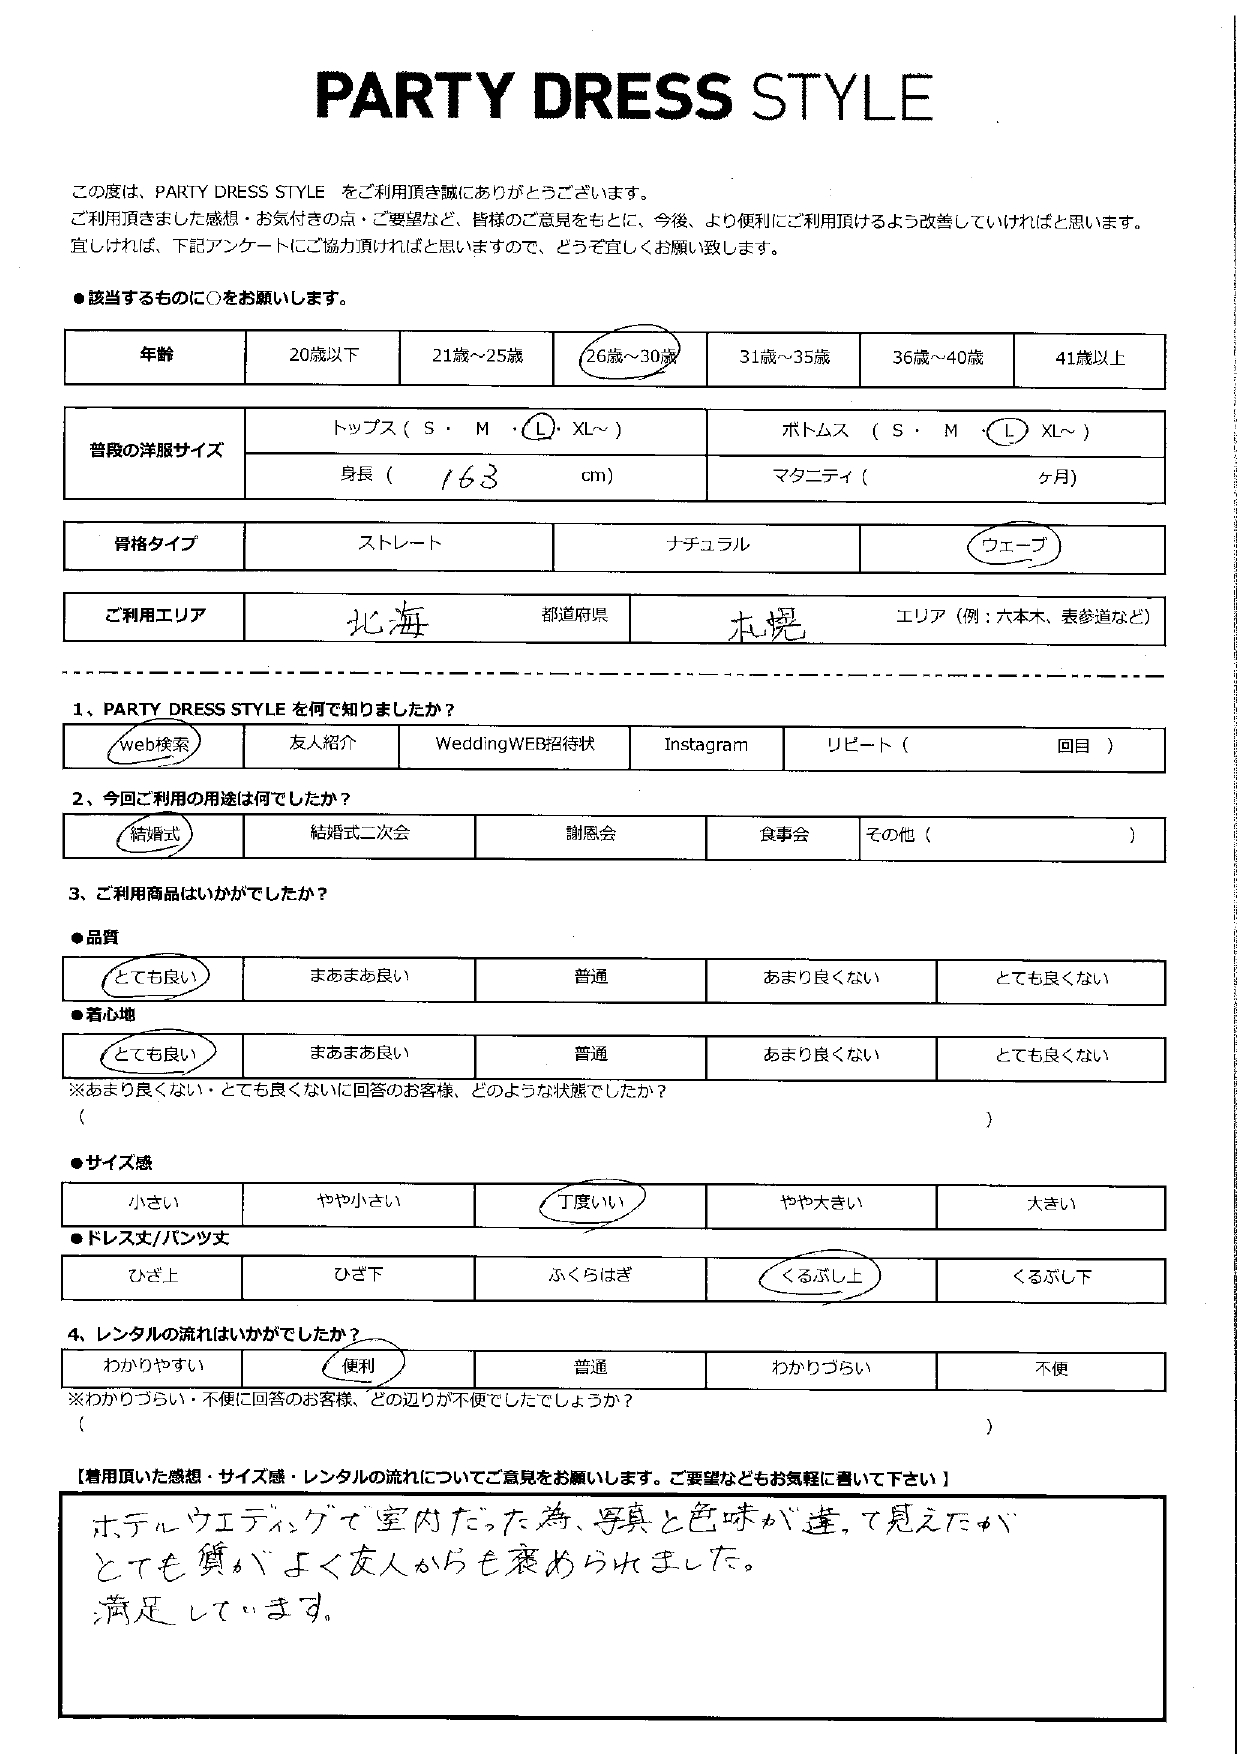 PARTY DRESS STYLE
この度は、PARTY DRESS STYLE をご利用頂き誠にありがとうございます。
ご利用頂きました感想・お気付きの点・ご要望など、皆様のご意見をもとに、今後、より便利にご利用頂けるよう改善していければと思います。
宜しければ、下記アンケートにご協力頂ければと思いますので、どうぞ宜しくお願い致します。
●該当するものに○をお願いします。
年齢 20歳以下 21歳～25歳 26歳～30歳 31歳～35歳 36歳～40歳 41歳以上
普段の洋服サイズ トップス ( S ・ M ・ L ・ XL～ ) ボトムス ( S ・ M ・ L XL～ )
身長 ( 163 cm) マタニティ ( ヶ月)
骨格タイプ ストレート ナチュラル ウェーブ
ご利用エリア 北海 都道府県 札幌 エリア（例：六本木、表参道など）
1、PARTY DRESS STYLE を何で知りましたか？
web検索 友人紹介 WeddingWEB招待状 Instagram リピート ( 回目 )
2、今回ご利用の用途は何でしたか？
結婚式 結婚式二次会 謝恩会 食事会 その他 ( )
3、ご利用商品はいかがでしたか？
●品質
とても良い まあまあ良い 普通 あまり良くない とても良くない
●着心地
とても良い まあまあ良い 普通 あまり良くない とても良くない
※あまり良くない・とても良くないに回答のお客様、どのような状態でしたか？
( )
●サイズ感
小さい やや小さい 丁度いい やや大きい 大きい
●ドレス丈/パンツ丈
ひざ上 ひざ下 ふくらはぎ くるぶし上 くるぶし下
4、レンタルの流れはいかがでしたか？
わかりやすい 便利 普通 わかりづらい 不便
※わかりづらい・不便に回答のお客様、どの辺りが不便でしたでしょうか？
( )
【着用頂いた感想・サイズ感・レンタルの流れについてご意見をお願いします。ご要望などもお気軽に書いて下さい】
ホテルウエディングで室内だった為、写真と色味が違って見えたが
とても質がよく友人からも褒められました。
満足しています。